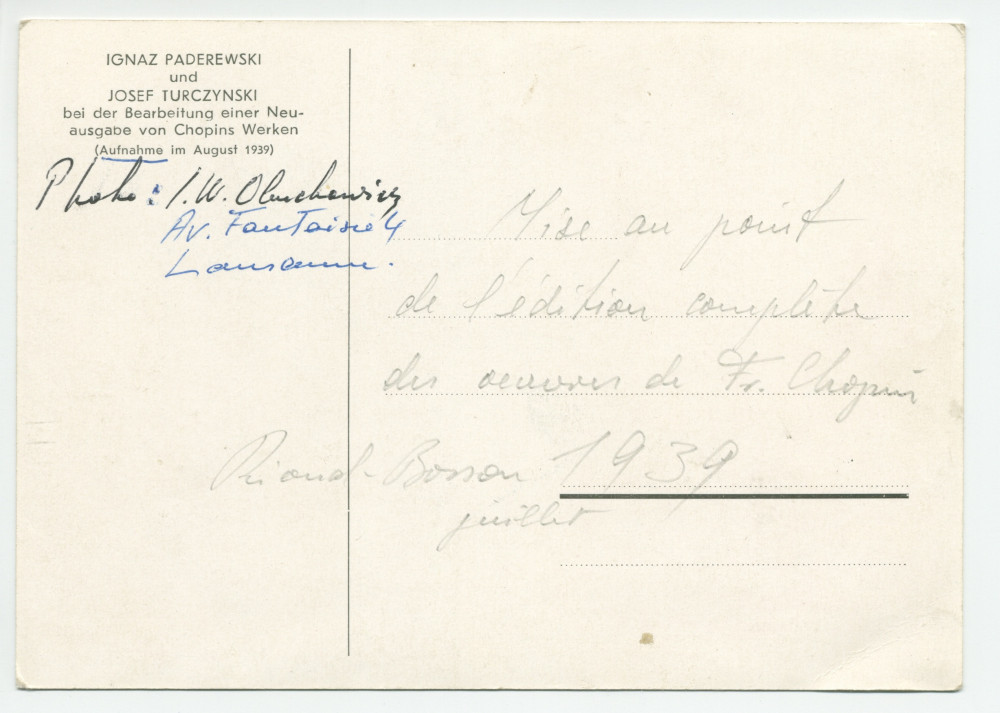 IGNAZ PADEREWSKI
und
JOSEF TURCZYNSKI
bei der Bearbeitung einer Neu-
ausgabe von Chopins Werken
(Aufnahme im August 1939)
Photo: I. W. Obuchowicz
Av. Fantaisie 4
Lausanne.
Mise au point
de l'édition complète
des oeuvres de Fr. Chopin
Riond-Bosson 1939
juillet